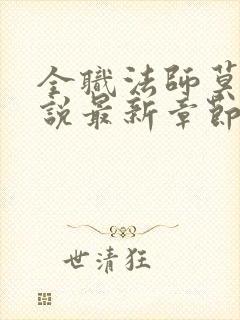 全職法師莫
說最新章節
世清狂